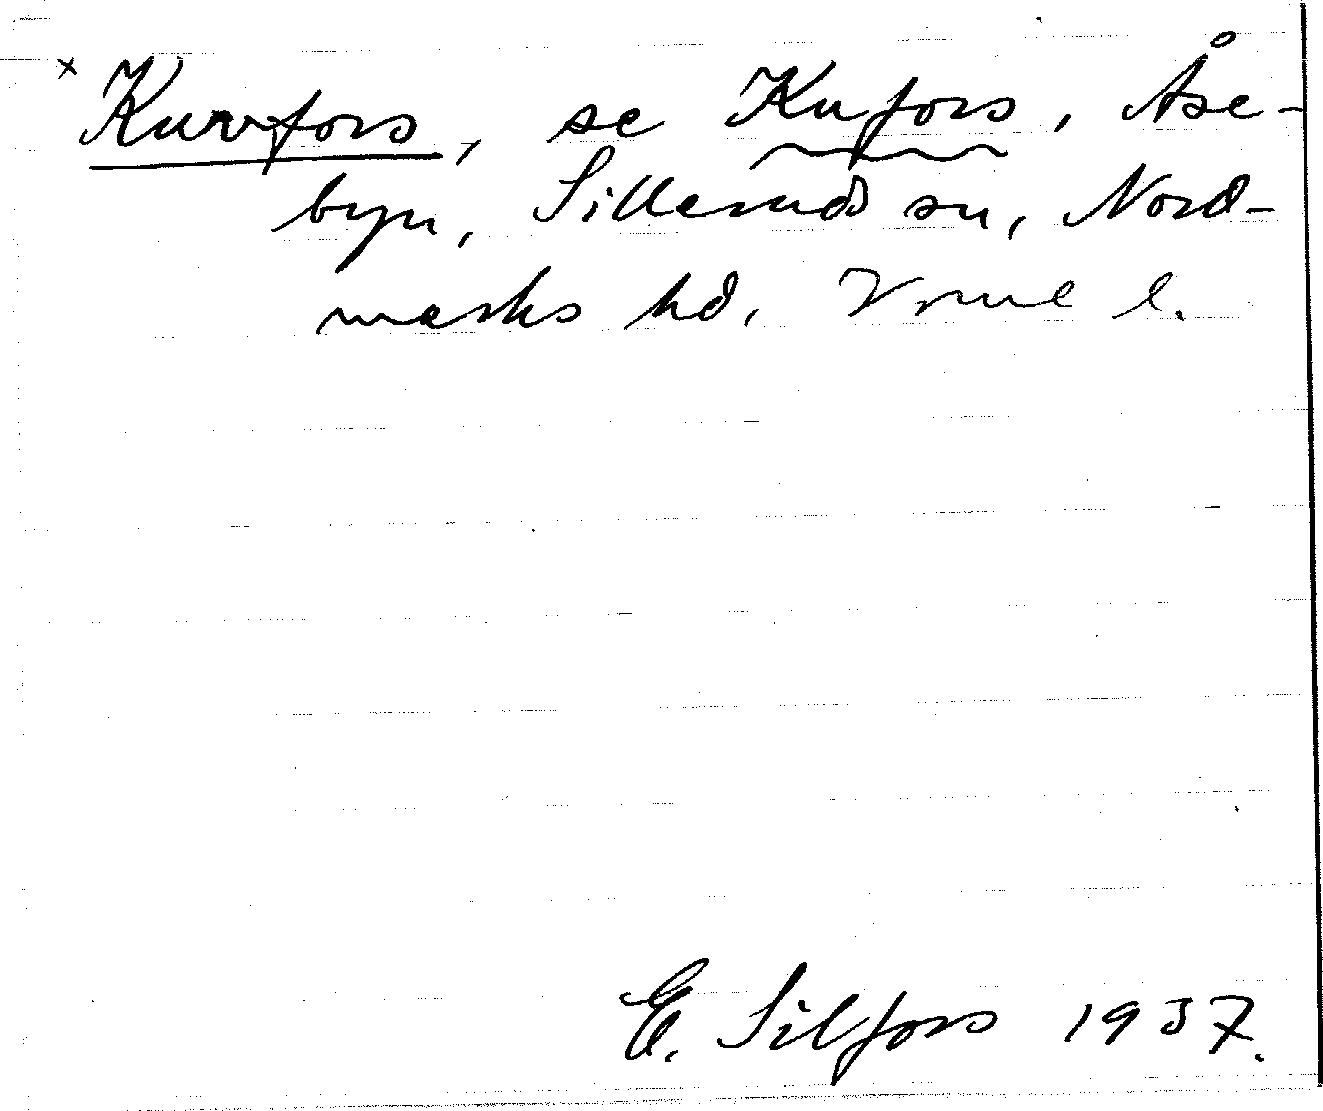 x Kurvfors, se Kufors, Åse-
byn, Silleruds sn, Nord-
marks hd, Vrml l.
E. Silfors 1937.